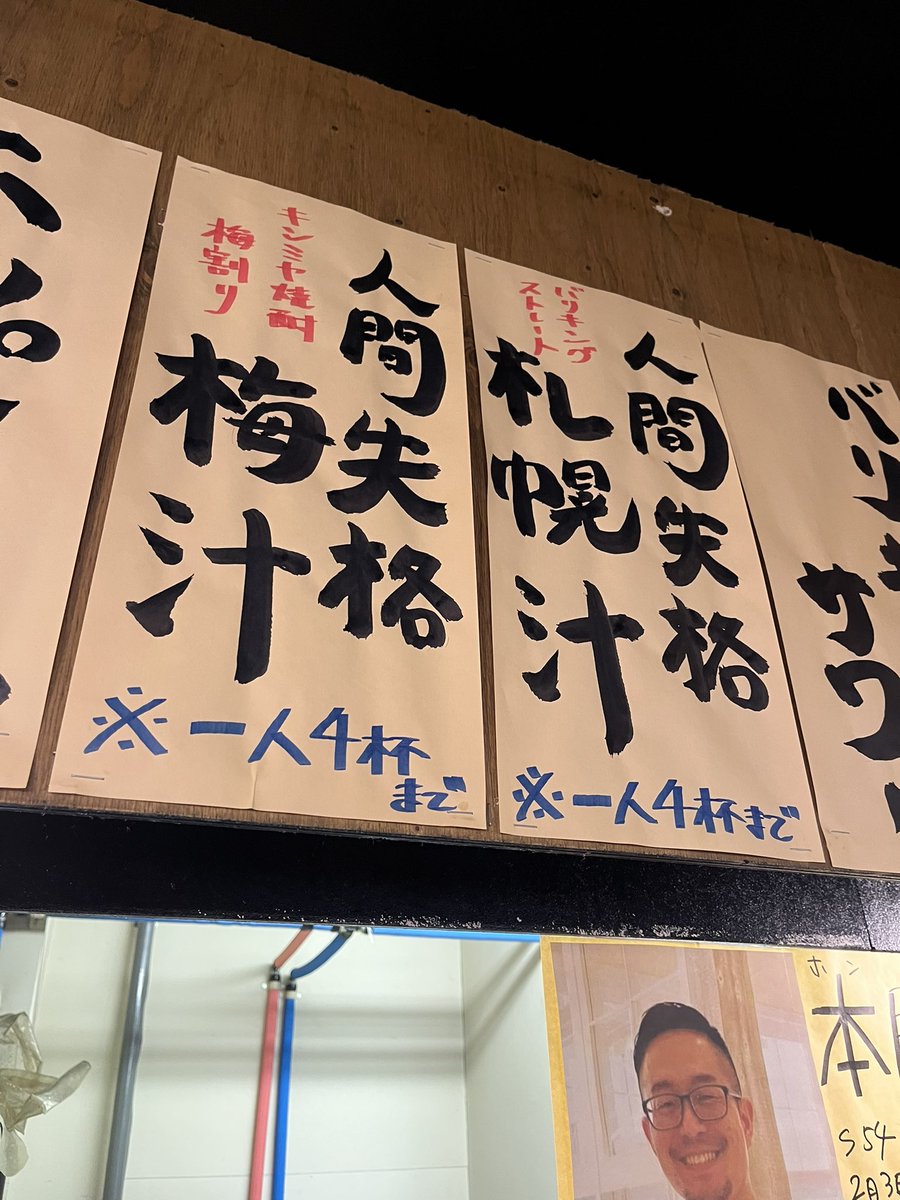 人間失格
キンミヤ焼酎
梅割り
梅汁
※一人4杯
まで
人間失格
バリキング
ストレート
札幌汁
※一人4杯まで
バリキ
サワー
ホン
本
S 54
2月3